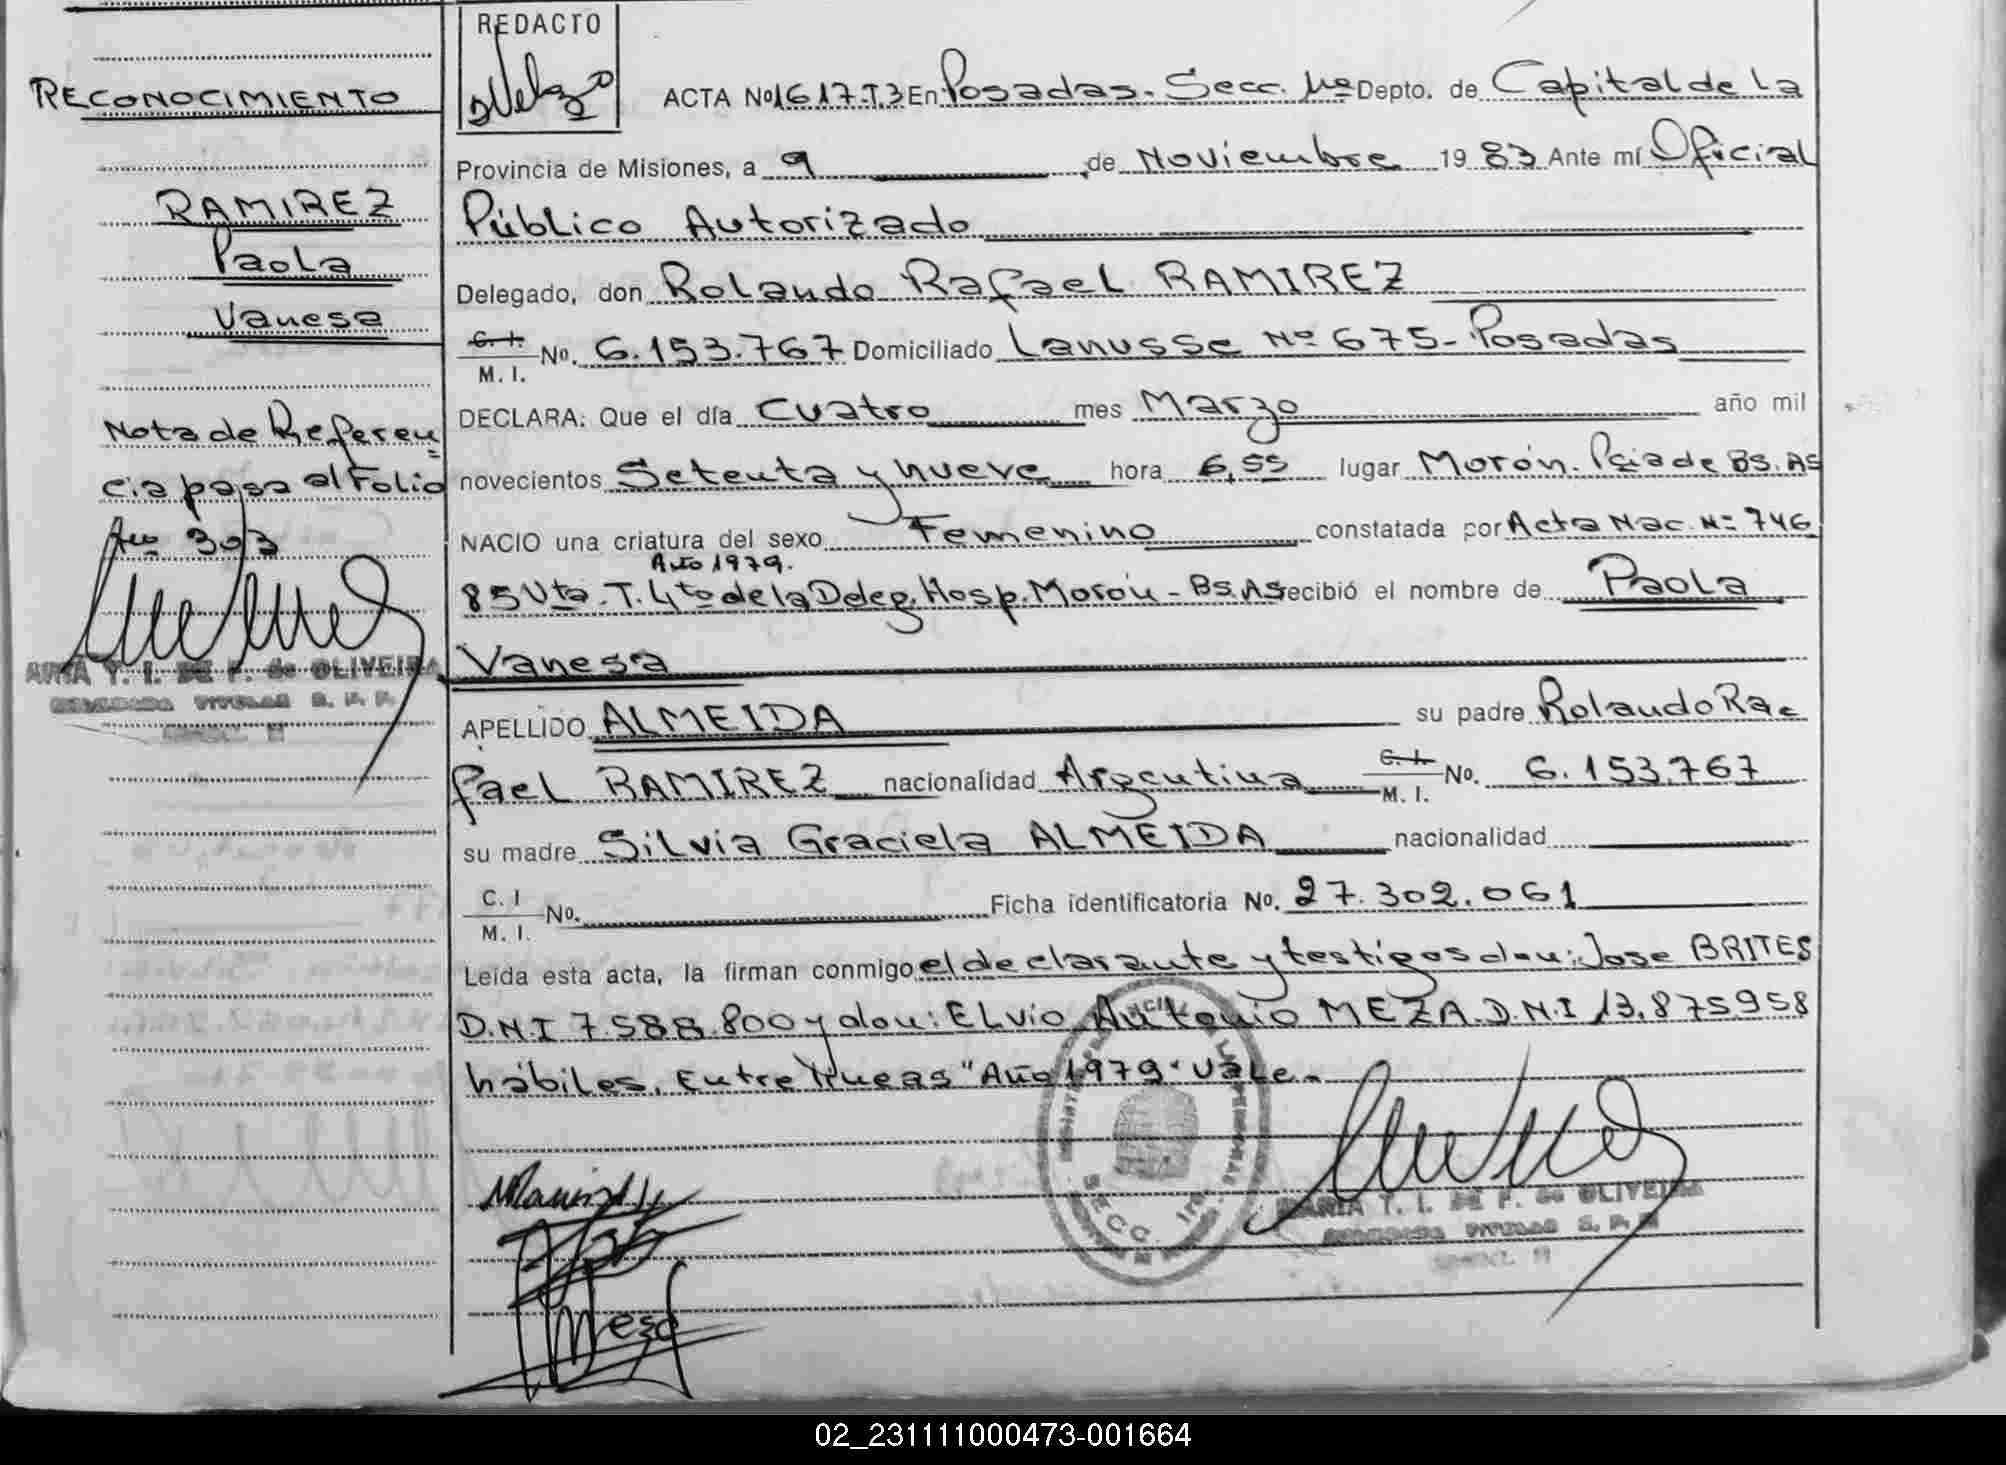 REDACTO
RECONOCIMIENTO
RAMIREZ
Paola
Vanesa
Nota de Referen=
cia pasa al Folio
Nº 303
MARIA T. I. DE F. de OLIVEIRA
DELEGADA TITULAR S. P. P.
ACTA Nº 1617-T3 En Posadas. Secc. 1ª Depto. de Capital de la
Provincia de Misiones, a 9 de Noviembre 1983 Ante mí Oficial
Público Autorizado
Delegado, don Rolando Rafael RAMIREZ
C. I. / M. I. No. 6.153.767 Domiciliado Lanusse Nº 675- Posadas
DECLARA: Que el día cuatro mes Marzo año mil
novecientos Setenta y nueve hora 6,55 lugar Morón. Pcia de BS. AS
NACIO una criatura del sexo Femenino constatada por Acta Nac. Nº 746
Año 1979.
85 Vta. T. 4to de la Deleg. Hosp. Morón - Bs. As recibió el nombre de Paola
Vanesa
APELLIDO ALMEIDA su padre Rolando Ra=
fael RAMIREZ nacionalidad Argentina C. I. / M. I. No. 6.153.767
su madre Silvia Graciela ALMEIDA nacionalidad
C. I / M. I. No. Ficha identificatoria No. 27.302.061
Leída esta acta, la firman conmigo el declarante y testigos don: Jose BRITES
D.N.I 7.588.800 y don: ELvio Antonio MEZA. D.N.I 13.875958
hábiles. Entre líneas "Año 1979" vale.
SECC. 1ra.
Meza
MARIA T. I. DE F. de OLIVEIRA
DELEGADA TITULAR S. P. P.
02_231111000473-001664